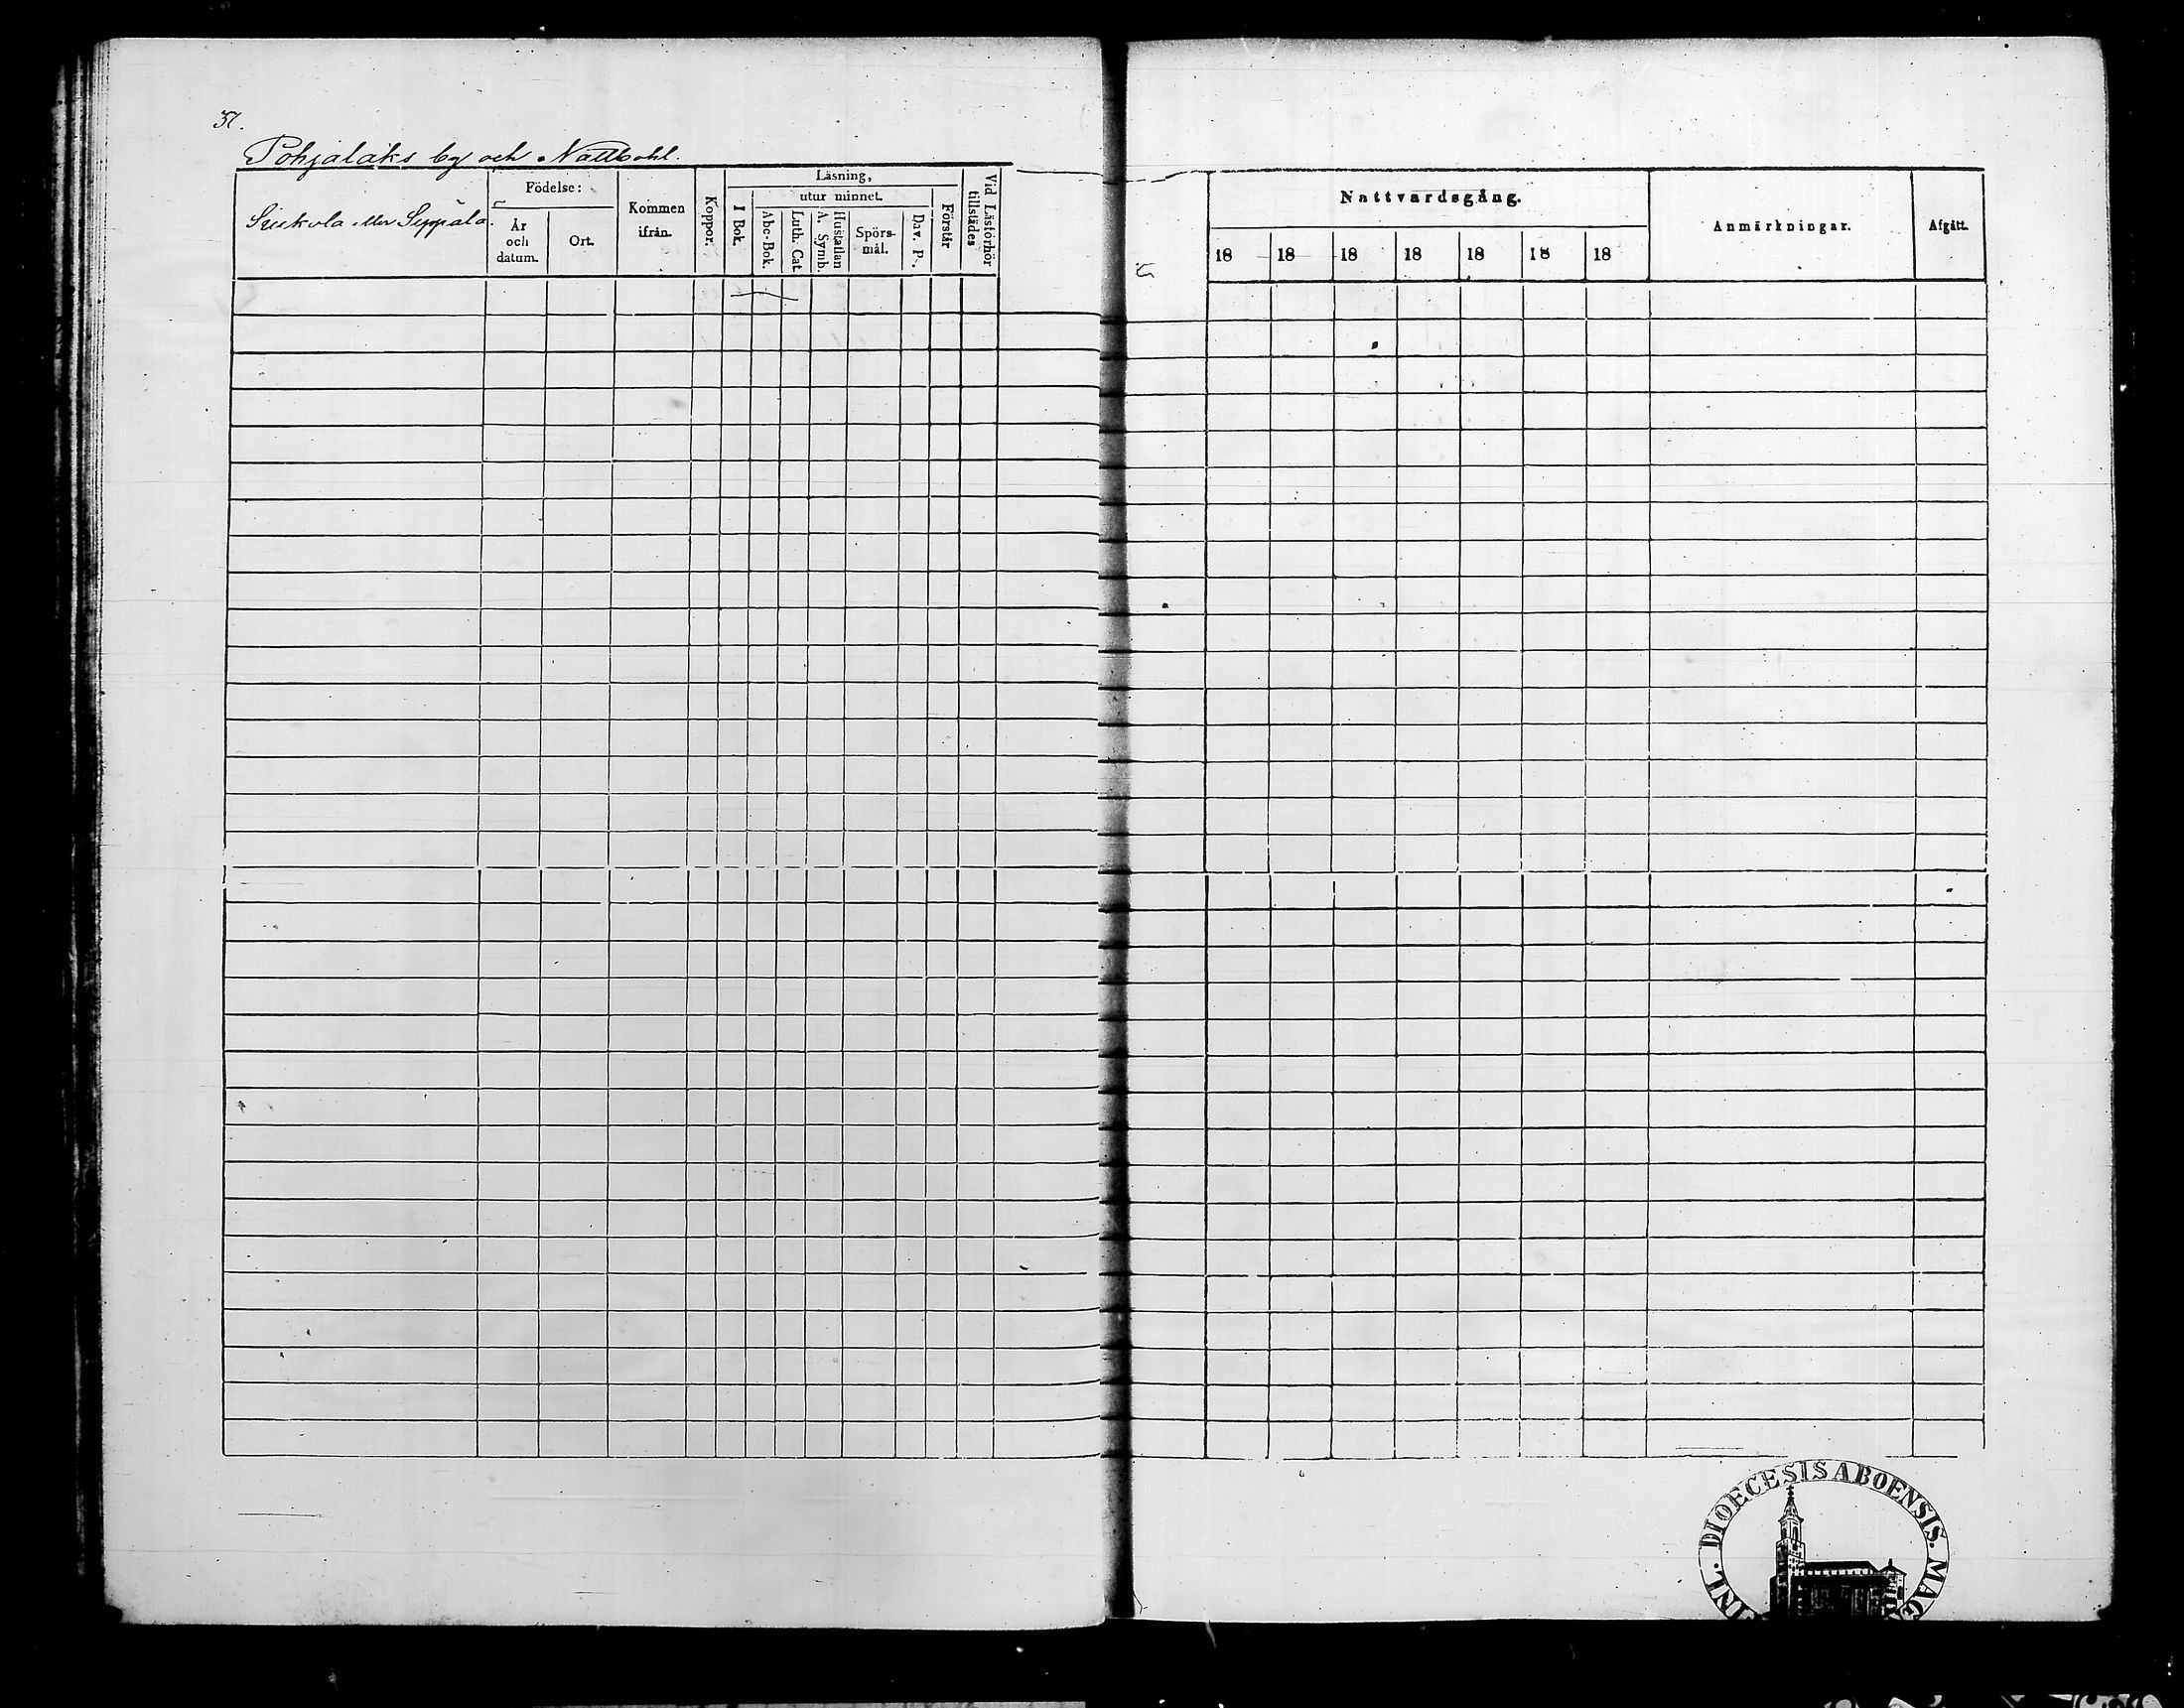 37.
Pohjalaks by och Nättbohl.
Siukola eller Seppälä.
Födelse:
År och datum.
Ort.
Kommen ifrån.
Koppor.
Läsning,
utur minnet.
I Bok.
Abc-Bok.
Luth. Cat.
A. Symb.
Hustaflan
Spörs-
mål.
Dav. P.
Förstår
Vid Läsförhör
tillstädes
Nattvardsgång.
18 18 18 18 18 18 18
Anmärkningar.
Afgått.
DIOECESIS ABOENSIS. MAG